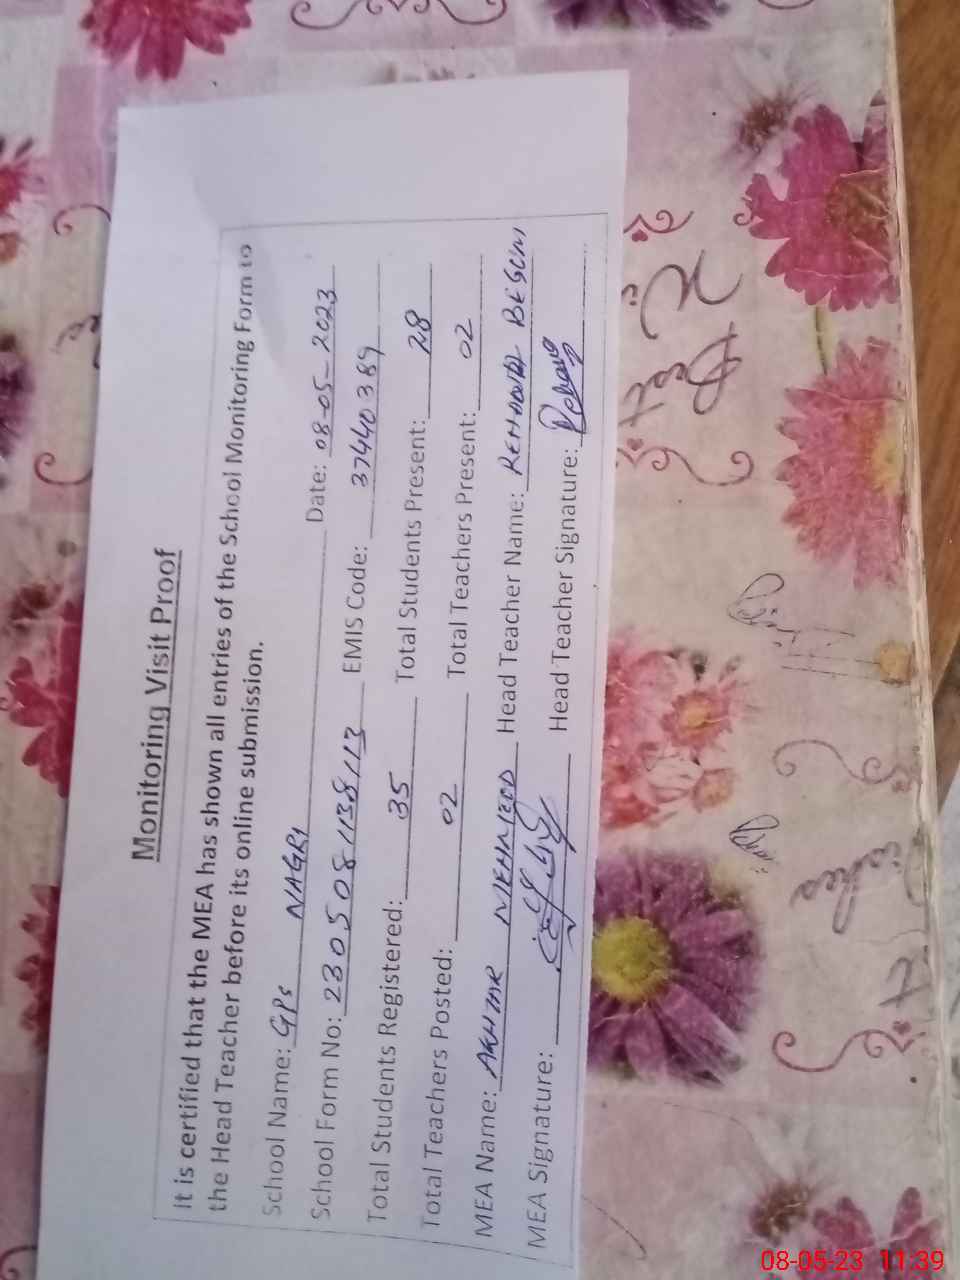 Monitoring Visit Proof
It is certified that the MEA has shown all entries of the School Monitoring Form to
the Head Teacher before its online submission.
School Name: GPS NAGRI Date: 08-05-2023
School Form No: 2305081138113 EMIS Code: 37440389
Total Students Registered: 35 Total Students Present: 28
Total Teachers Posted: 02 Total Teachers Present: 02
MEA Name: AKHTAR MEHMEOD Head Teacher Name: REHANA BEGUM
MEA Signature: Head Teacher Signature:
08-05-23 11:39